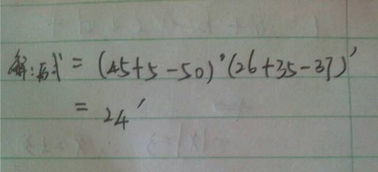 解:原式=(45+5-50)°(26+35-37)′
=24′